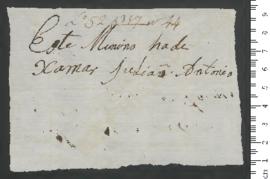 Lo 52 44
Este Minino hade
Xamar Julião Antonio